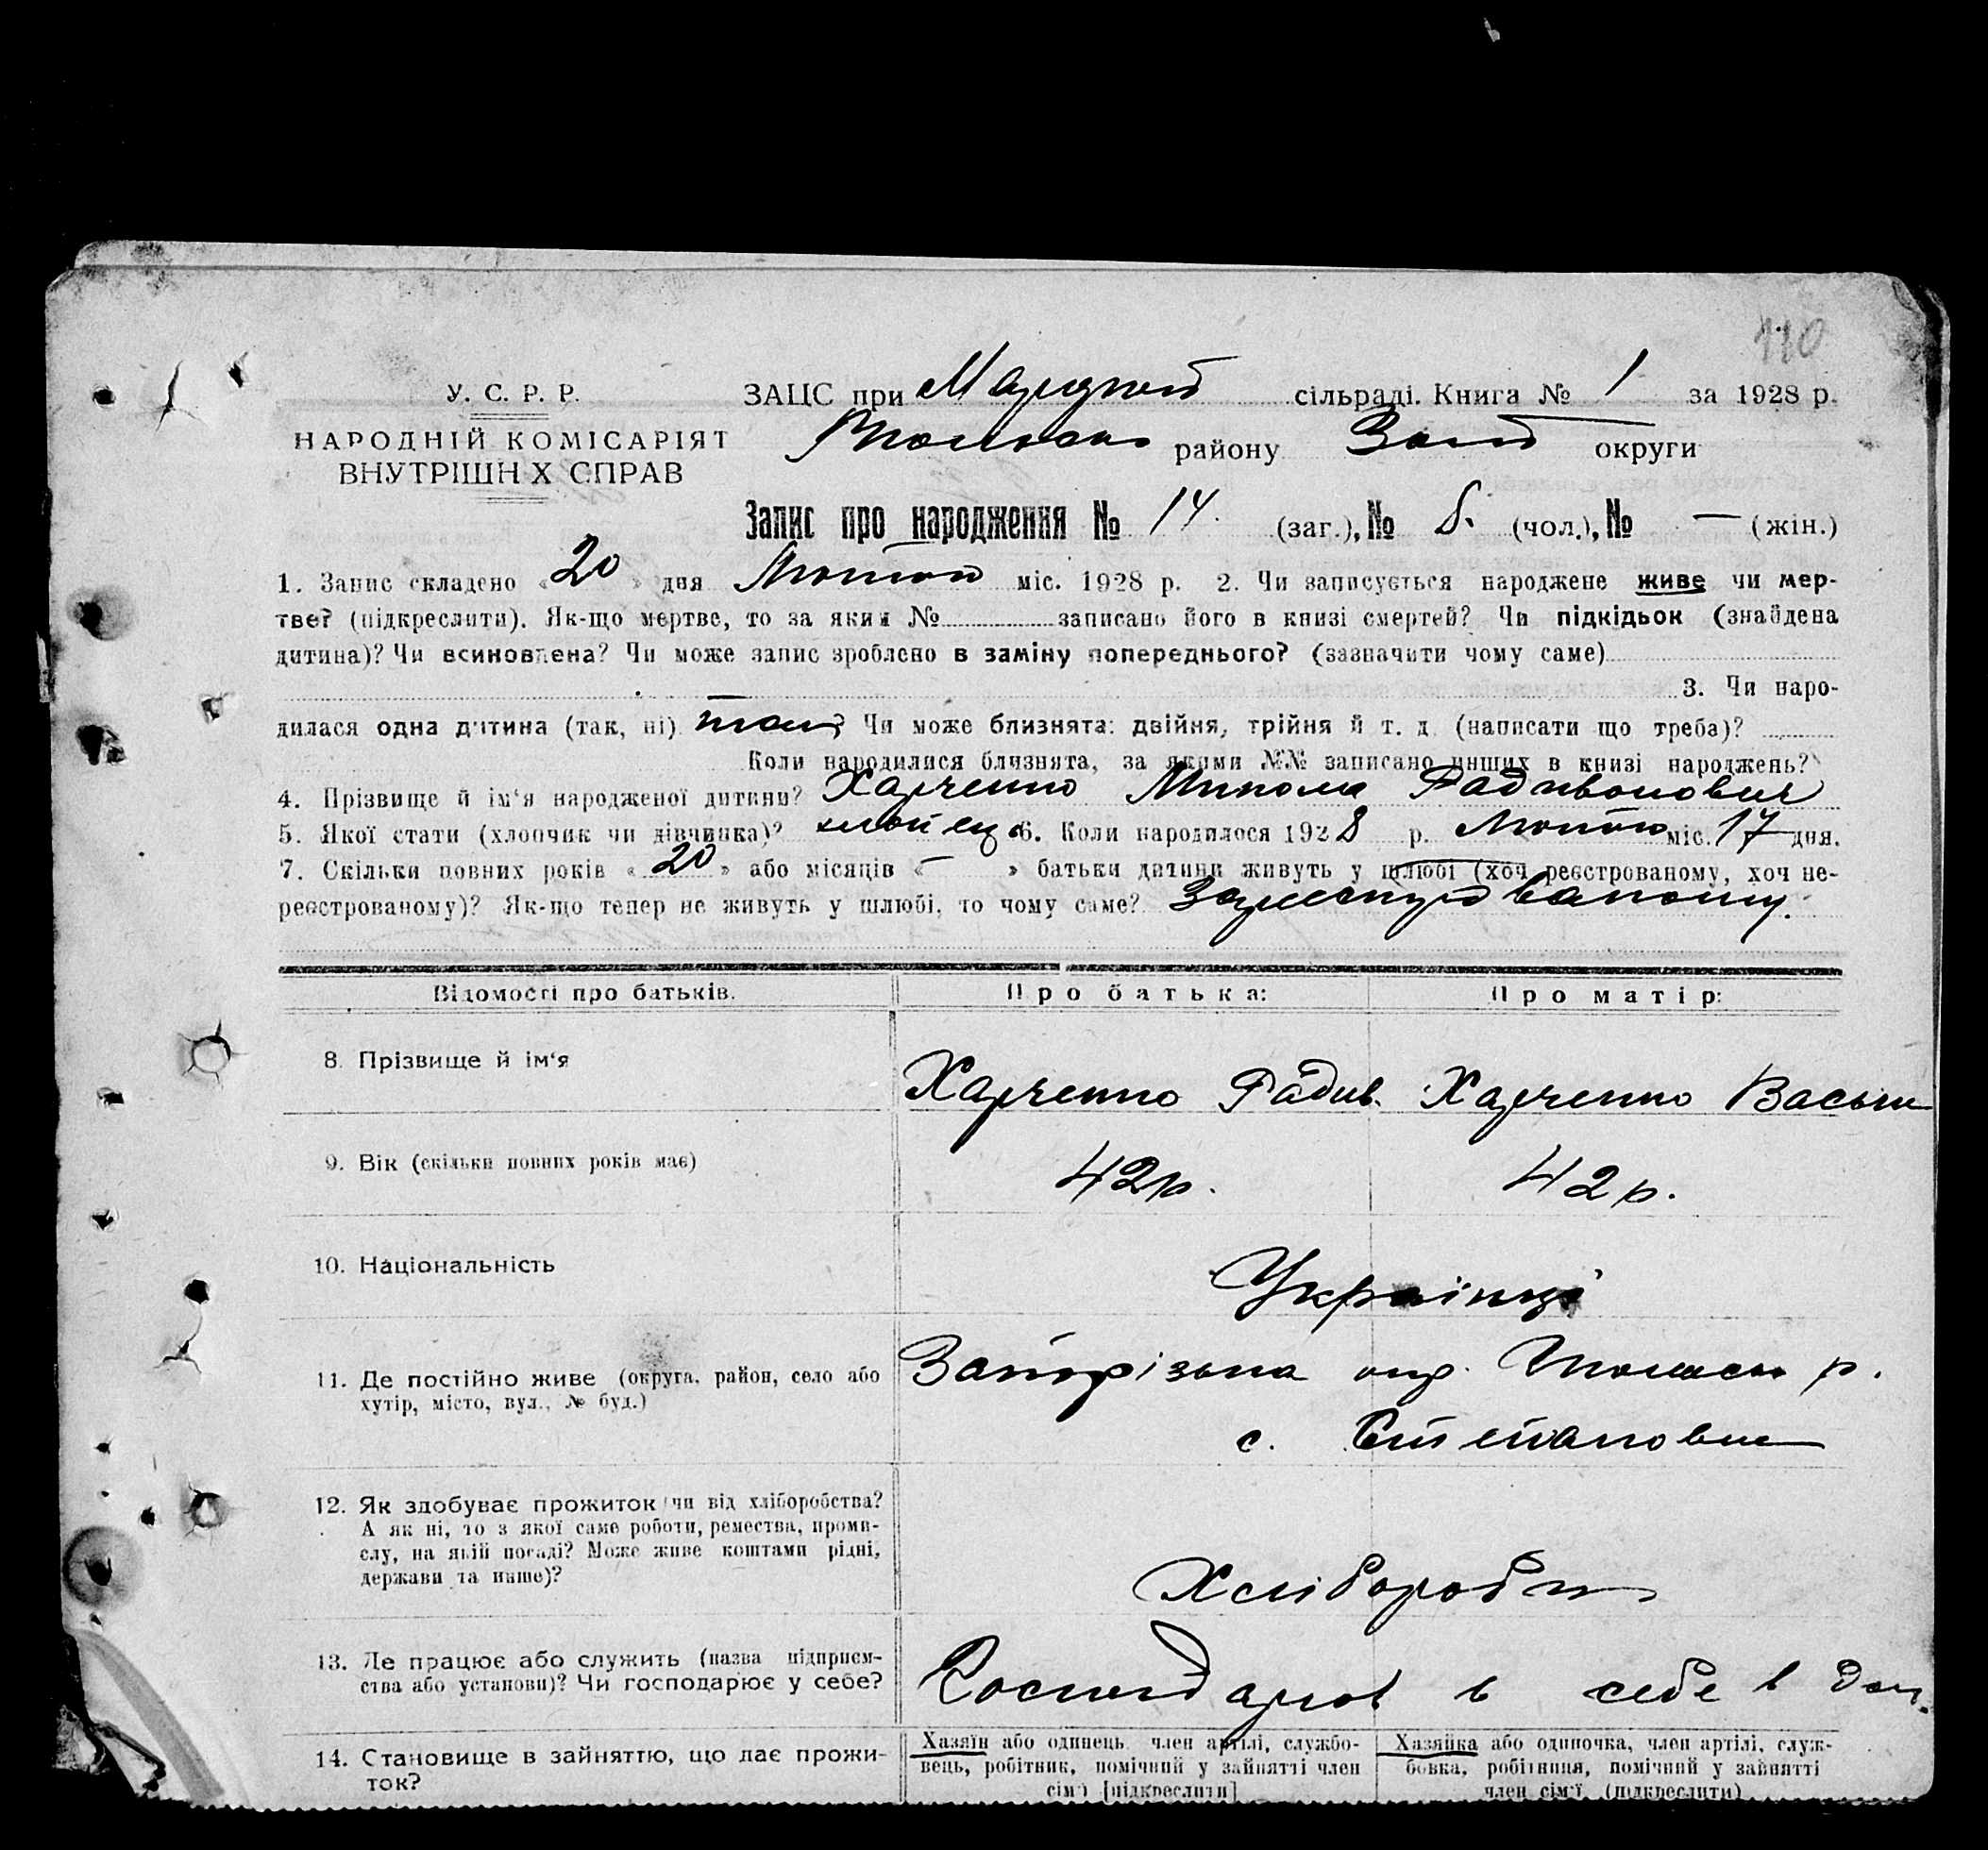 110
У. С. Р. Р.
ЗАЦС при сільраді. Книга № 1 за 1928 р.
НАРОДНІЙ КОМІСАРІЯТ
ВНУТРІШН Х СПРАВ
району округи
Запис про народження № 14. (заг.), № (чол.), № — (жін.)
1. Запис складено «20» дня Лютого міс. 1928 р. 2. Чи записується народжене живе чи мер-
тве? (підкреслити). Як-що мертве, то за яким № записано його в книзі смертей? Чи підкідьок (знайдена
дитина)? Чи всиновлена? Чи може запис зроблено в заміну попереднього? (зазначити чому саме)
3. Чи наро-
дилася одна дитина (так, ні) так? Чи може близнята: двійня, трійня й т. д. (написати що треба)?
Коли народилися близнята, за якими №№ записано инших в книзі народжень?
4. Прізвище й ім'я народженої дитини? Харченко Микола Радивонович
5. Якої стати (хлопчик чи дівчинка)? хлопець 6. Коли народилося 1928 р. Лютого міс. 17 дня.
7. Скільки повних років «20» або місяців « — » батьки дитини живуть у шлюбі (хоч реєстрованому, хоч не-
реєстрованому)? Як-що тепер не живуть у шлюбі, то чому саме?
Відомості про батьків. Про батька: Про матір:
8. Прізвище й ім'я Харченко Радив. Харченко
9. Вік (скільки повних років має) 42 р. 42 р.
10. Національність Українці
11. Де постійно живе (округа, район, село або Запорізька окр. р.
хутір, місто, вул., № буд.) с. Степановка
12. Як здобуває прожиток чи від хліборобства?
А як ні, то з якої саме роботи, ремества, проми-
слу, на якій посаді? Може живе коштами рідні,
держави та инше)? Хлібороби
13. Де працює або служить (назва підприєм-
ства або установи)? Чи господарює у себе? в себе в
14. Становище в зайняттю, що дає прожи-
ток?
Хазяїн або одинець, член артілі, службо-
вець, робітник, помічний у зайнятті член
сім'ї [підкреслити]
Хазяйка або одиночка, член артілі, служ-
бовка, робітниця, помічний у зайнятті
член сім'ї (підкреслити)